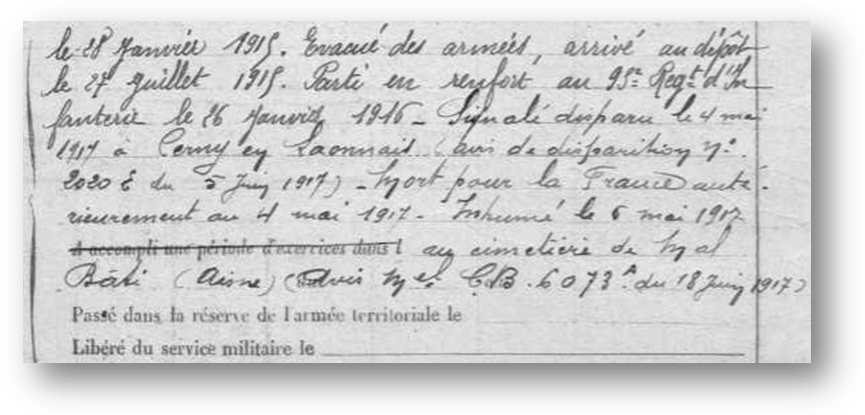 le 28 Janvier 1915. Evacué des armées, arrivé au dépôt
le 27 Juillet 1915. Parti en renfort au 95e Regt d'In
fanterie le 26 Janvier 1916 - Signalé disparu le 4 mai
1917 à Cerny en Laonnais (avis de disparition No.
2020 E du 5 Juin 1917) - Mort pour la France anté-
rieurement au 4 mai 1917 - Inhumé le 6 mai 1917
A accompli une période d'exercices dans l au cimetière de Mal
Bâti (Aisne) (Avis Mel C.B. 6073 du 18 Juin 1917)
Passé dans la réserve de l'armée territoriale le
Libéré du service militaire le